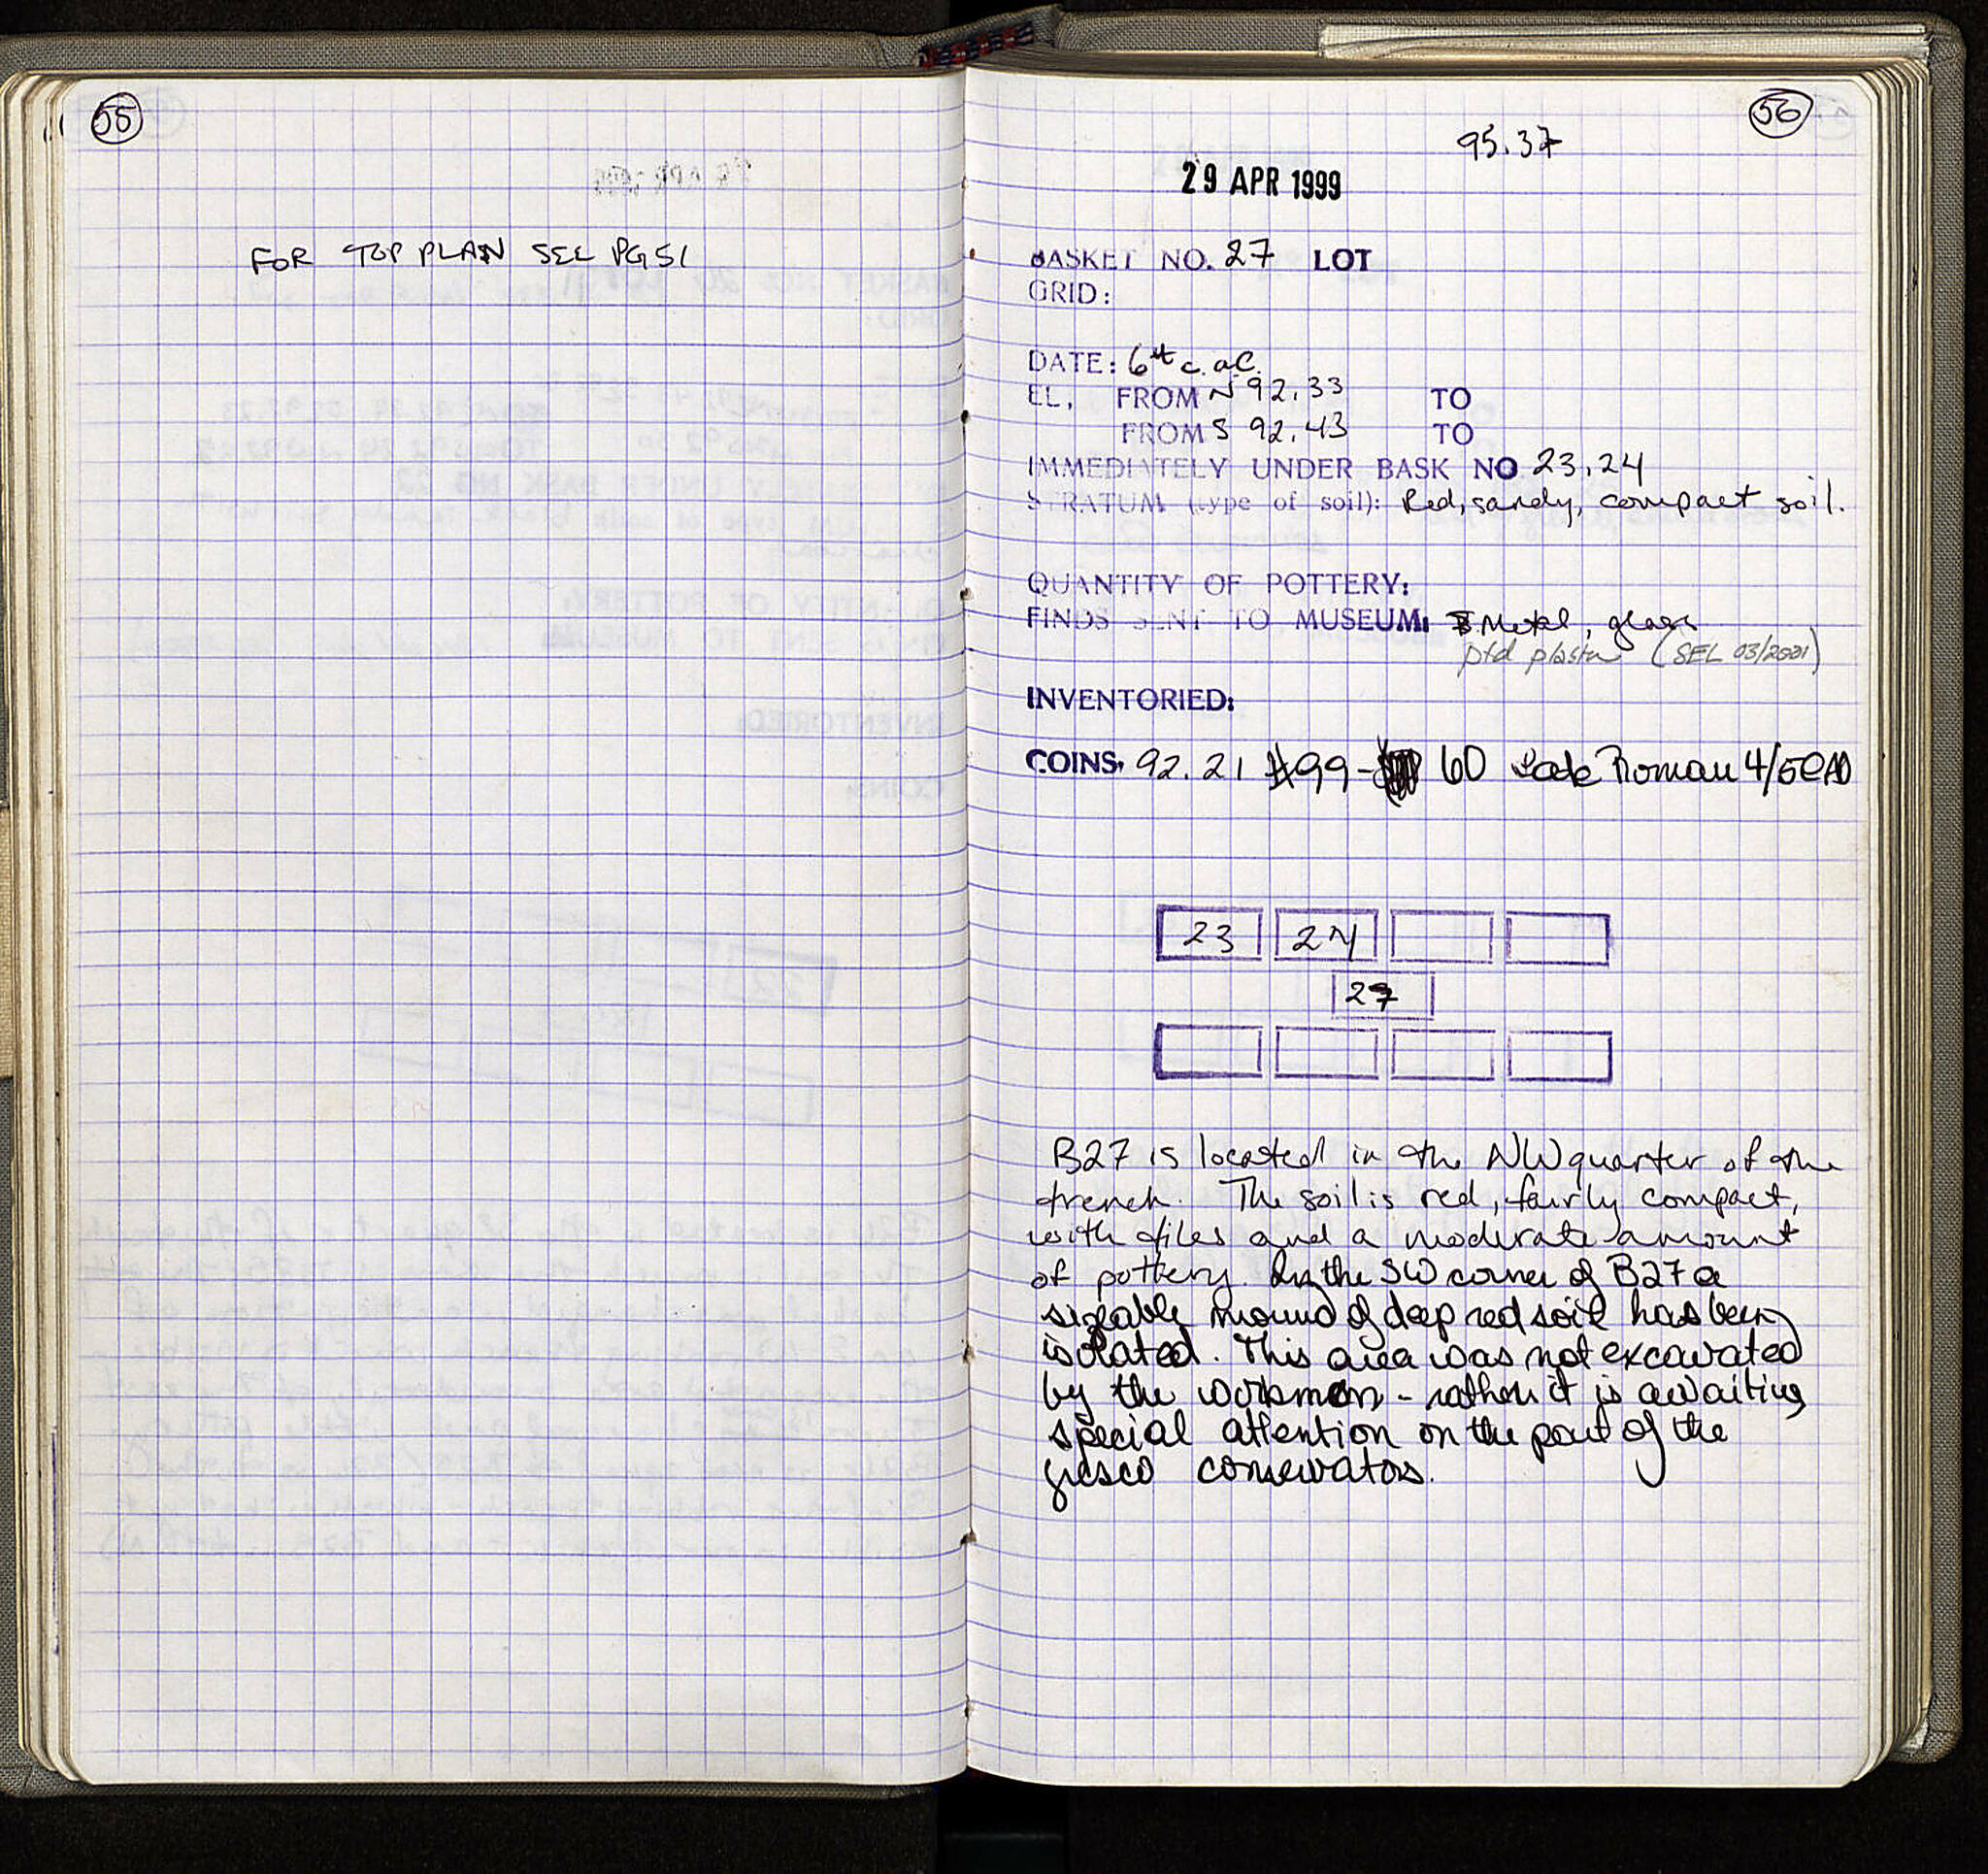 55
FOR TOP PLAN SEE PG 51
56
95.37
29 APR 1999
BASKET NO. 27 LOT
GRID:
DATE: 6th c. a.C.
EL, FROM N 92.33 TO
FROM S 92.43 TO
IMMEDIATELY UNDER BASK NO 23,24
STRATUM (type of soil): Red, sandy, compact soil.
QUANTITY OF POTTERY:
FINDS SENT TO MUSEUM: Metal, glass
ptd plaster (SEL 03/2001)
INVENTORIED:
COINS: 92.21 #99- 60 Late Roman 4/5C AD
23 24
27
B27 is located in the NW quarter of the
trench. The soil is red, fairly compact,
with tiles and a moderate amount
of pottery. In the SW corner of B27 a
sizeable mound of deep red soil has been
isolated. This area was not excavated
by the workmen - rather it is awaiting
special attention on the part of the
fresco conservators.